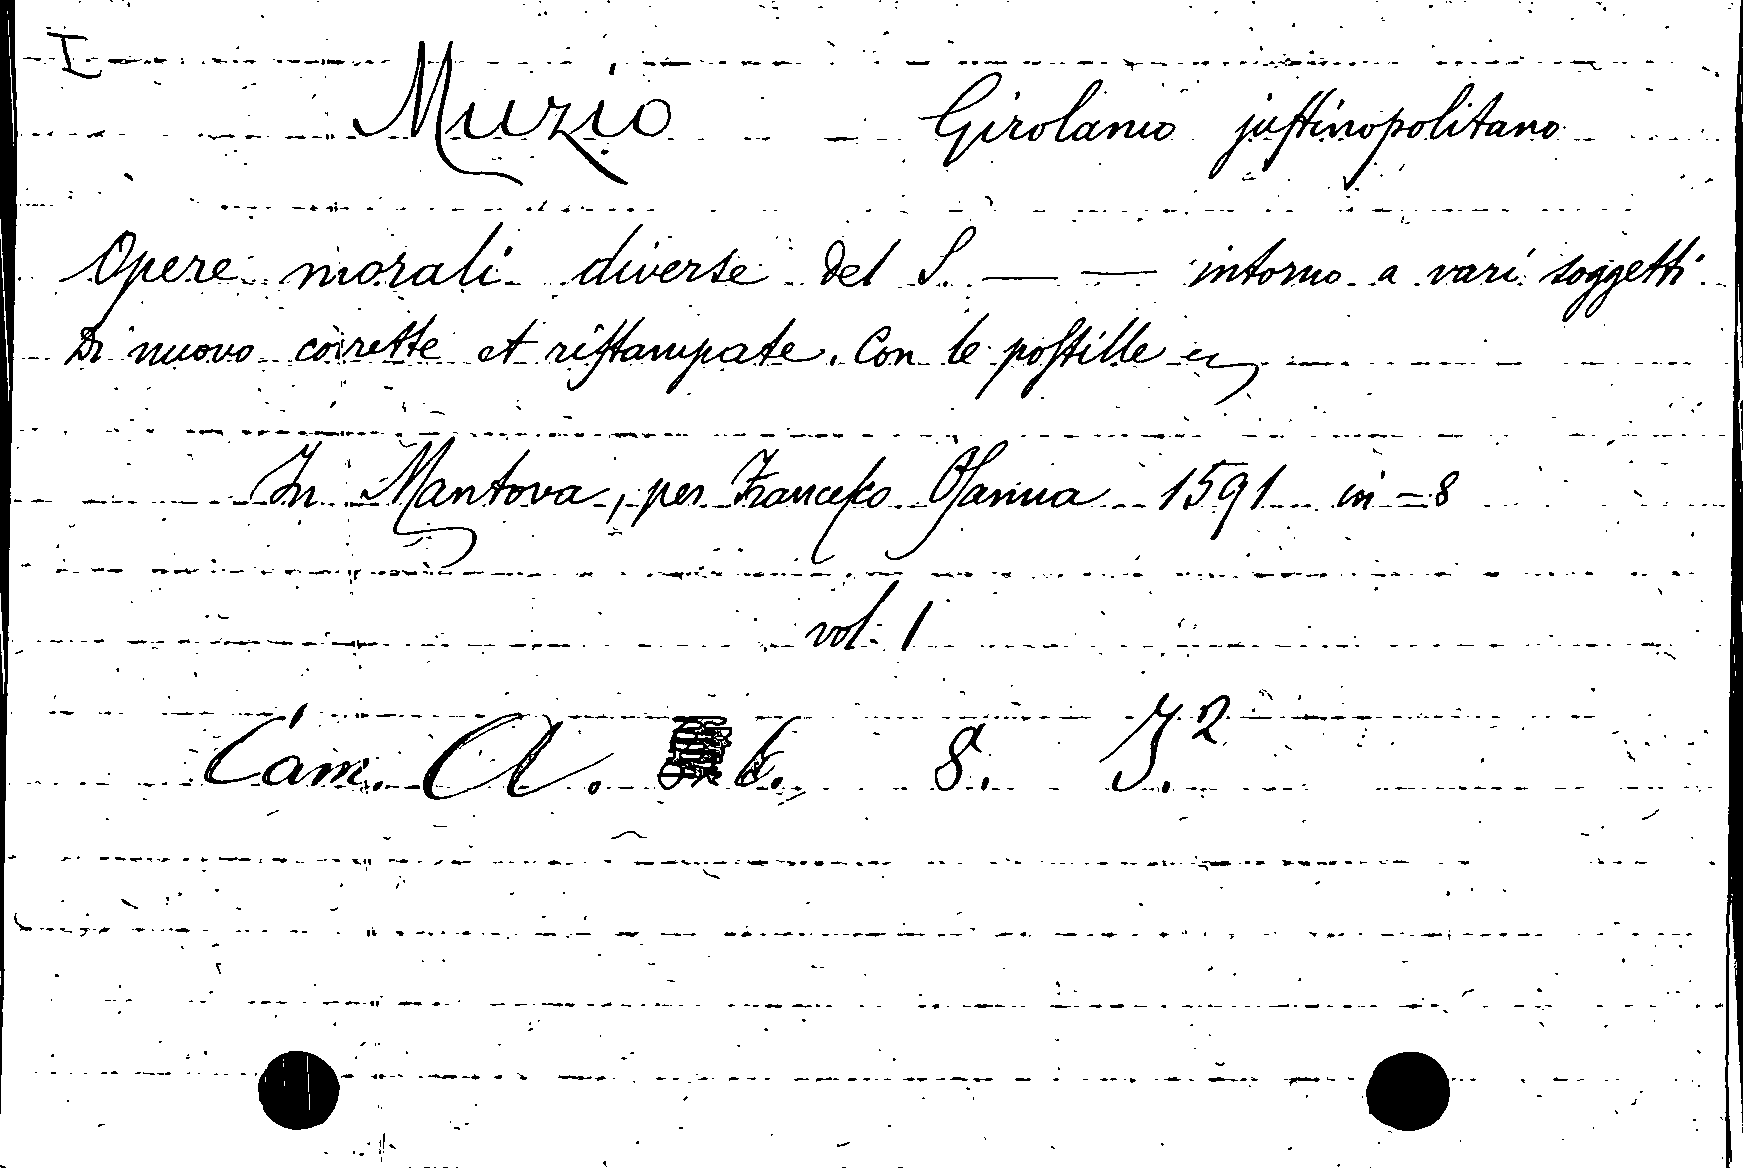 I
Muzio Girolamo justinopolitano
Opere morali diverse del S. — — intorno a vari soggetti
Di nuovo corrette et ristampate. Con le postille
In Mantova, per Francesco Osanna 1591 in-8
vol. 1
Cam. A. 6. 8. J.²